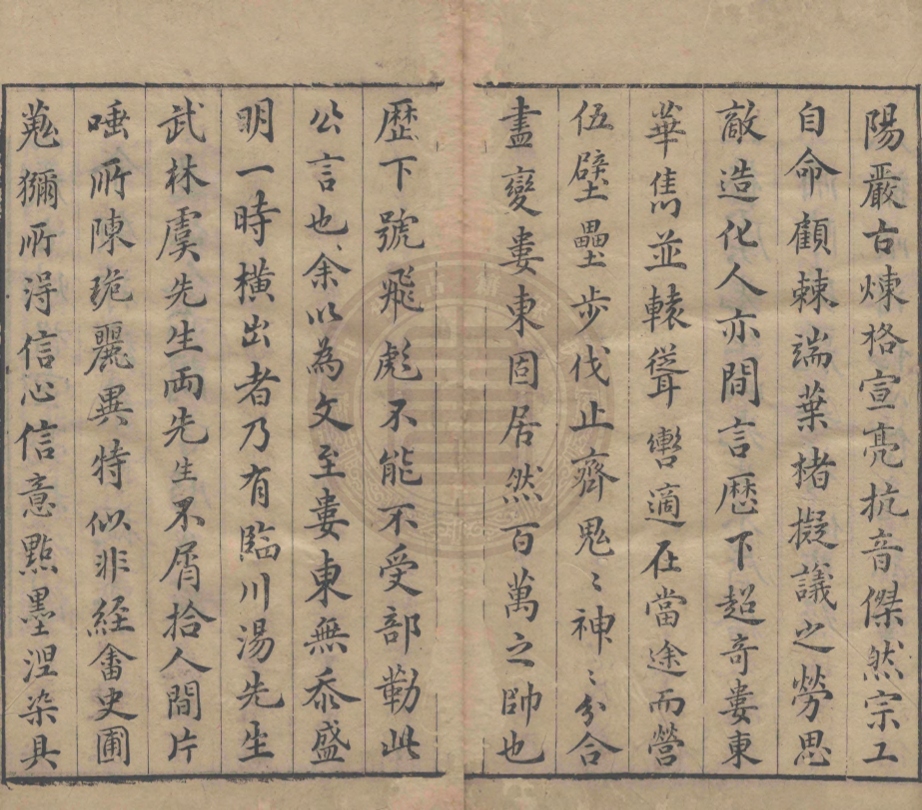 陽嚴古煉格宣亮抗音傑然宗工
自命顧棘端葉楮擬議之勞思
敵造化人亦間言歷下超奇婁東
華雋並轅聳轡適在當途而營
伍壁壘步伐止齊鬼〻神〻分合
盡變婁東固居然百萬之帥也
歷下號飛彪不能不受部勒此
公言也余以為文至婁東無忝盛
明一時橫出者乃有臨川湯先生
武林虞先生兩先生不屑拾人間片
唾所陳玼麗異特似非經畬史圃
蒐獮所淂信心信意點墨涅染具